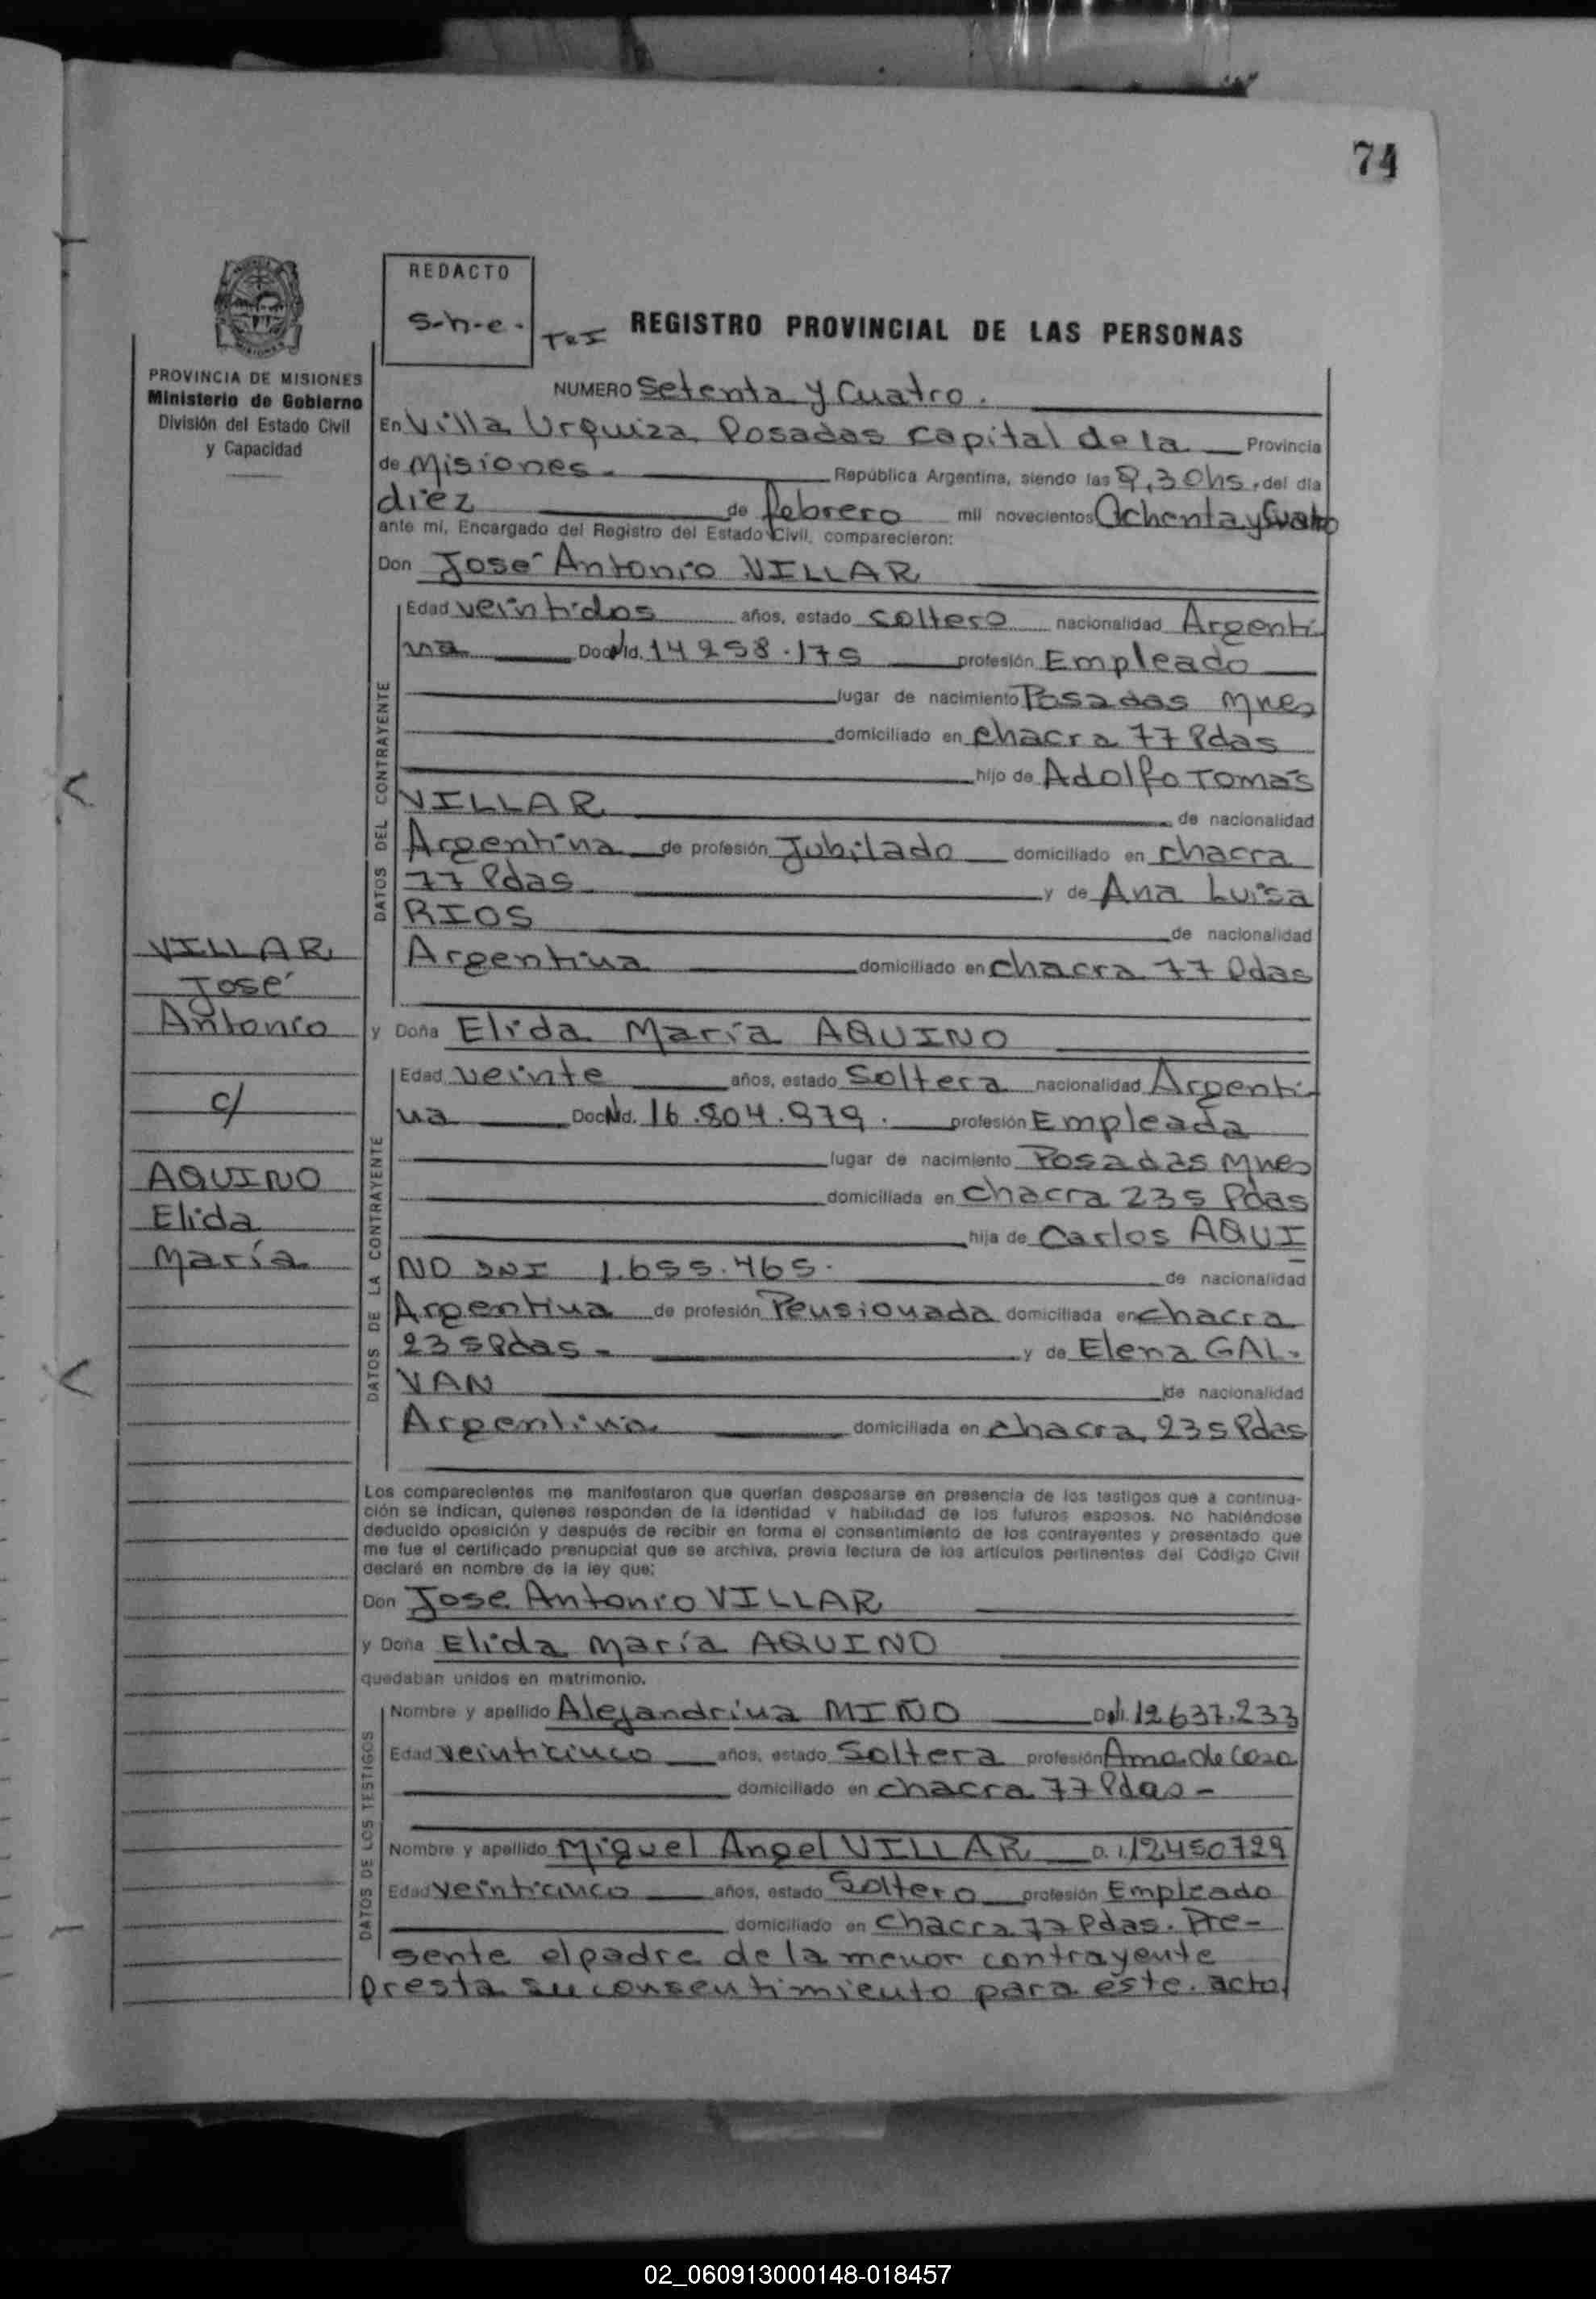 74
REDACTO
s-h-e.
REGISTRO PROVINCIAL DE LAS PERSONAS
PROVINCIA DE MISIONES
Ministerio de Gobierno
División del Estado Civil
y Capacidad
NUMERO Setenta y Cuatro.
En Villa Urquiza Posadas capital de la Provincia
de Misiones - República Argentina, siendo las 8,30hs. del día
diez de febrero mil novecientos Ochenta y Cuatro
ante mí, Encargado del Registro del Estado Civil, comparecieron:
Don José Antonio VILLAR
Edad veintidos años, estado soltero nacionalidad Argenti-
na Doc. Nd. 14 258.175 profesión Empleado
lugar de nacimiento Posadas Mnes
domiciliado en chacra 77 Pdas
hijo de Adolfo Tomás
VILLAR de nacionalidad
Argentina de profesión Jubilado domiciliado en chacra
77 Pdas y de Ana Luisa
RIOS de nacionalidad
Argentina domiciliado en chacra 77 Pdas
y Doña Elida María AQUINO
Edad veinte años, estado Soltera nacionalidad Argenti-
na Doc. Nd. 16.804.979. profesión Empleada
lugar de nacimiento Posadas Mnes
domiciliada en chacra 235 Pdas
hija de Carlos AQUI
NO DNI 1.655.465. de nacionalidad
Argentina de profesión Pensionada domiciliada en chacra
235 Pdas - y de Elena GAL-
VAN de nacionalidad
Argentina domiciliada en chacra 235 Pdas
VILLAR
José
Antonio
c/
AQUINO
Elida
María
DATOS DEL CONTRAYENTE
DATOS DE LA CONTRAYENTE
Los comparecientes me manifestaron que querían desposarse en presencia de los testigos que a continua-
ción se indican, quienes responden de la identidad y habilidad de los futuros esposos. No habiéndose
deducido oposición y después de recibir en forma el consentimiento de los contrayentes y presentado que
me fue el certificado prenupcial que se archiva, previa lectura de los artículos pertinentes del Código Civil
declaré en nombre de la ley que:
Don Jose Antonio VILLAR
y Doña Elida María AQUINO
quedaban unidos en matrimonio.
DATOS DE LOS TESTIGOS
Nombre y apellido Alejandrina MIÑO 12637.233
Edad veinticinco años, estado Soltera profesión Ama de Casa
domiciliado en chacra 77 Pdas -
Nombre y apellido Miguel Angel VILLAR D. I. 12450729
Edad veinticinco años, estado Soltero profesión Empleado
domiciliado en chacra 77 Pdas. Pre-
sente el padre de la menor contrayente
presta su consentimiento para este. acto
02_060913000148-018457